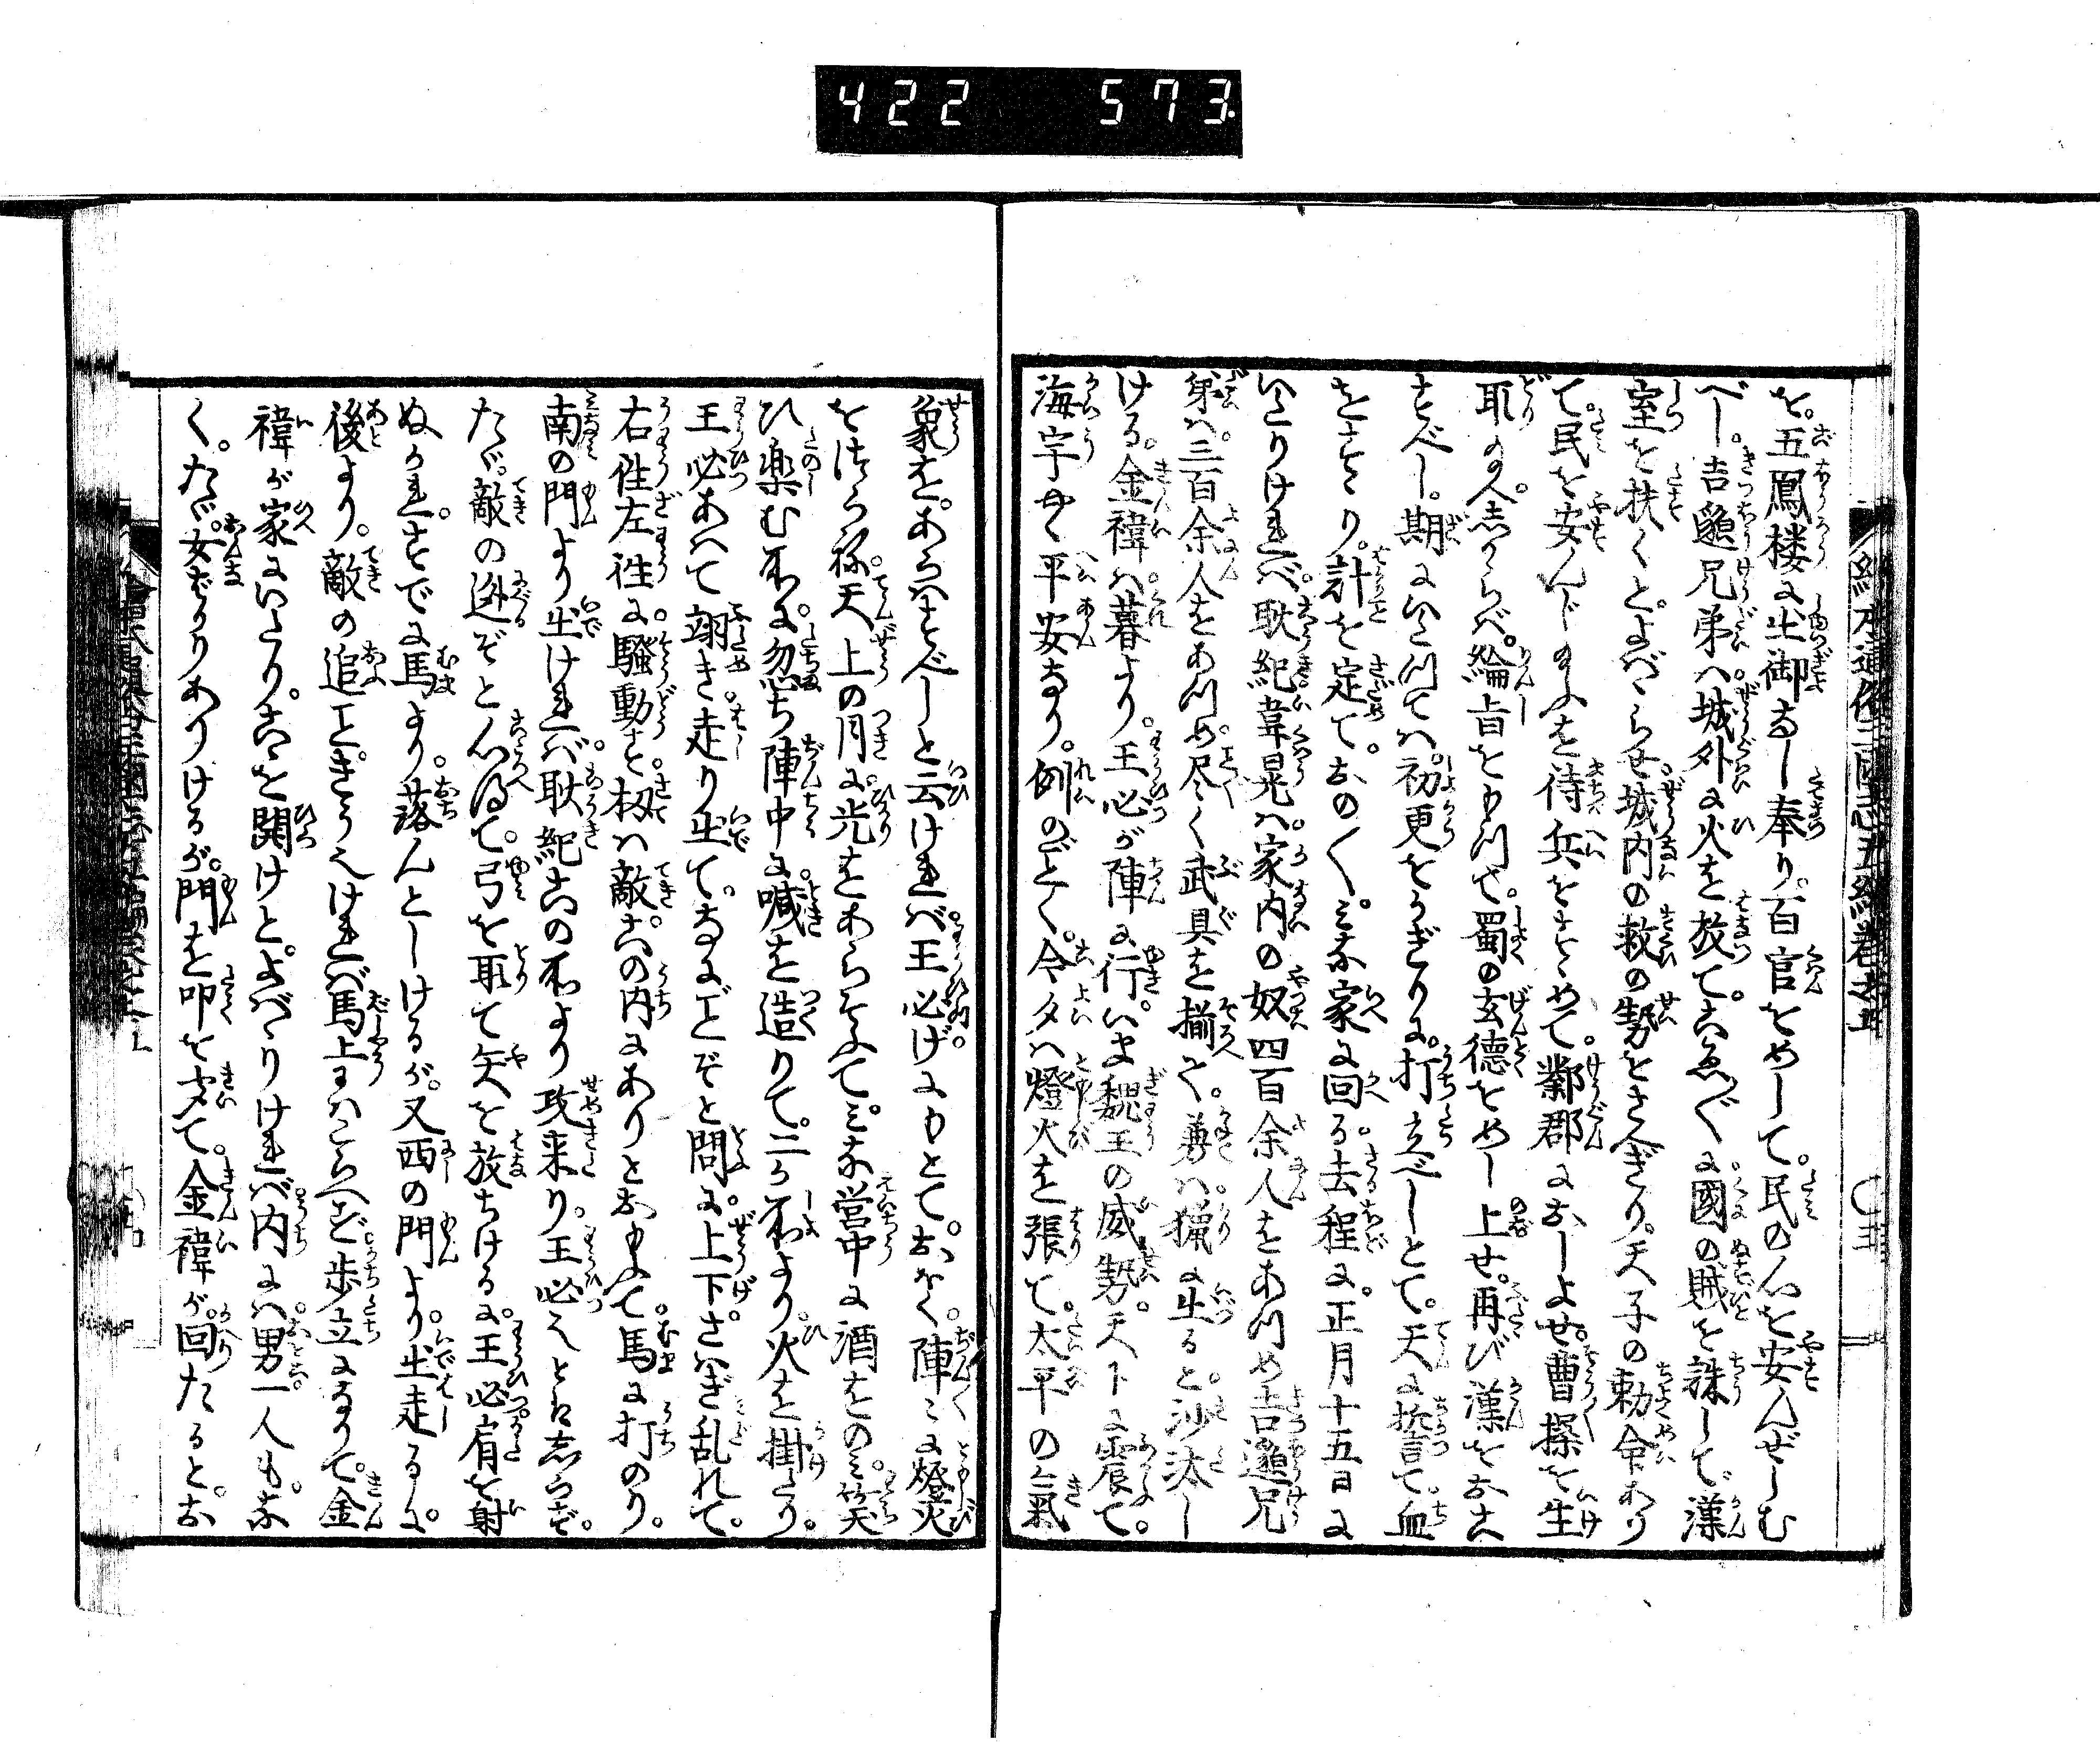 422 573
を。五鳳楼に出御なし奉り。百官をめして。民の心を安んぜしむ
べし。吉邈兄弟ハ。城外に火を放て。こゑ〴〵に。國の賊を誅して。漢
室を扶くと。よバゝらせ。城内の救の勢をさへぎり。天子の勅命あり
て。民を安んじ玉ふを待。兵をすゝめて。鄴郡におしよせ。曹操を生
取の人。しからバ。綸旨をもつて。蜀の玄德をめし上せ。再び漢をおこ
すべし。期にいたつてハ。初更をかぎりに。打立べしとて。天に誓て。血
をすゝり。計を定て。おの〳〵。ミな家に回る。去程に。正月十五日に
いたりけれバ。耿紀韋晃ハ。家内の奴四百余人をあつめ吉邈兄
弟ハ。三百余人をあつめ。尽く武具を揃へ。兼ハ。獵に出ると。沙汰し
ける。金禕ハ。暮より。王必が陣に行。いま魏王の威勢。天下に震て。
海宇やく平安なり。例のごとく。今夕ハ燈火を張て。太平の氣
象を。あらハすべしと云けれバ。王必げにもとて。おなく。陣〻に燈火
をつらね。天上の月に。光をあらそふて。ミな営中に酒をのミ。笑
ひ樂む所に。忽ち陣中に。喊を造りて。二ヶ所より。火を掛たり。
王必あハて翔き。走り出て。なにごとぞと問に。上下。さハぎ乱れて。
右徃左徃に。騒動す。扨ハ敵。この内にありとおもふて。馬に打のり。
南の門より出けれバ。耿紀この所より攻来り。王必ともしらず。
たゞ。敵の迯ぞと心得て。弓を取て矢を放ちけるに。王必肩を射
ぬかれ。すでに馬より。落んとしけるが。又西の門より。出走るに。
後より。敵の追ことぎうなりけれバ馬上にハこらへず歩立になりて。金
禕が家にいたり。こゝを開けと。よバゝりけれバ。内にハ。男一人も。な
く。たゞ。女ばかりありけるが。門を叩くを聞て。金禕が。回たると。お